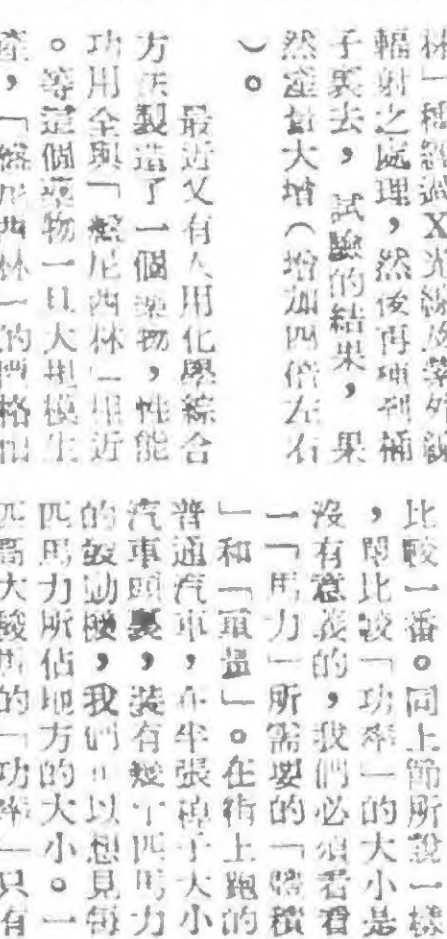 林一種經過X光線及紫外線
輻射之處理，然後再種到桶
子裏去，試驗的結果，果
然產量大增（增加四倍左右
）。
最近又有人用化學綜合
方法製造了一個藥物，性能
功用全與「盤尼西林」相近
。等這個藥物一旦大規模生
產，「盤尼西林」的價格
比較一番。同上節所說一樣
，單比較「功率」的大小是
沒有意義的，我們必須看看
一「馬力」所需要的「體積
」和「重量」。在街上跑的
普通汽車，在半張檯子大小
汽車頭裏，裝有幾十匹馬力
的發動機，我們可以想見每
匹馬力所佔地方的大小。一
匹高大駿馬的「功率」只有